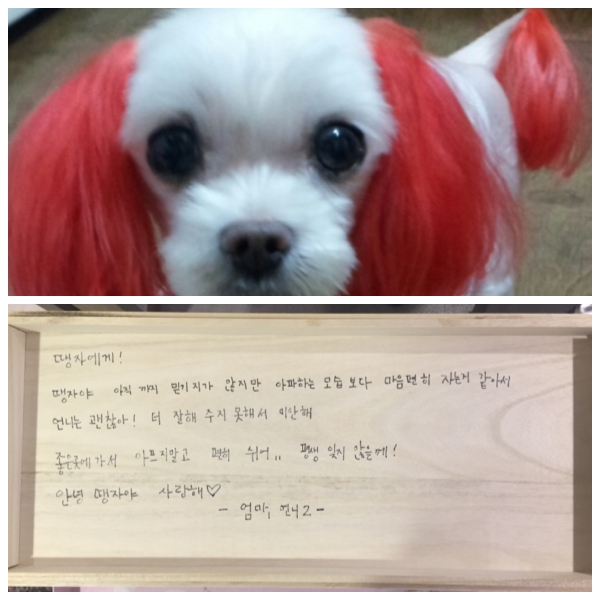 땡자에게!
땡자야 아직 까지 믿기지가 않지만 아파하는 모습 보다 마음편히 자는거 같아서
언니는 괜찮아! 더 잘해 주지 못해서 미안해
좋은곳에 가서 아프지말고 편히 쉬어,, 평생 잊지 않을께!
안녕 땡자야 사랑해♡
- 엄마, 언니2 -